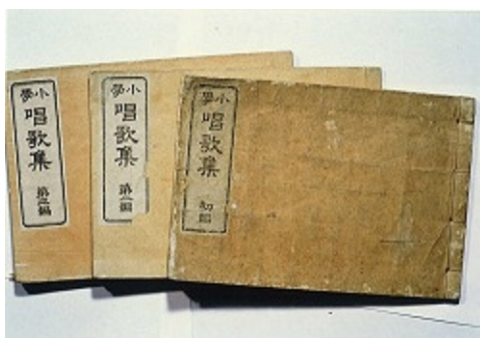 小學
唱歌集
初編
小學
唱歌集
第二編
小學
唱歌集
第三編